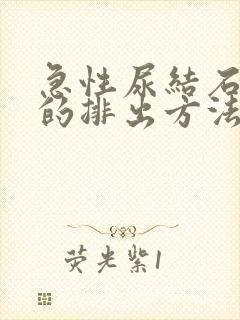 急性尿結石
的排出方法
荧光紫1